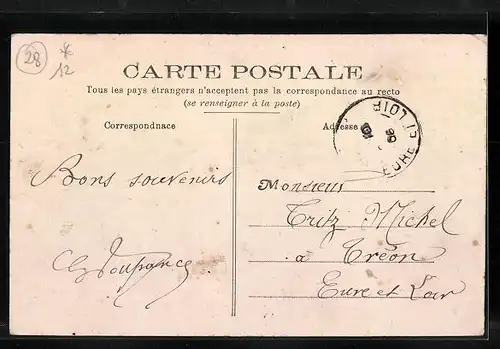 28
* 12
CARTE POSTALE
Tous les pays étrangers n'acceptent pas la correspondance au recto
(se renseigner à la poste)
Correspondnace
Adresse
EURE ET LOIR
Bons souvenirs
Monsieur
Tritz Michel
à Tréon
Eure et Loir